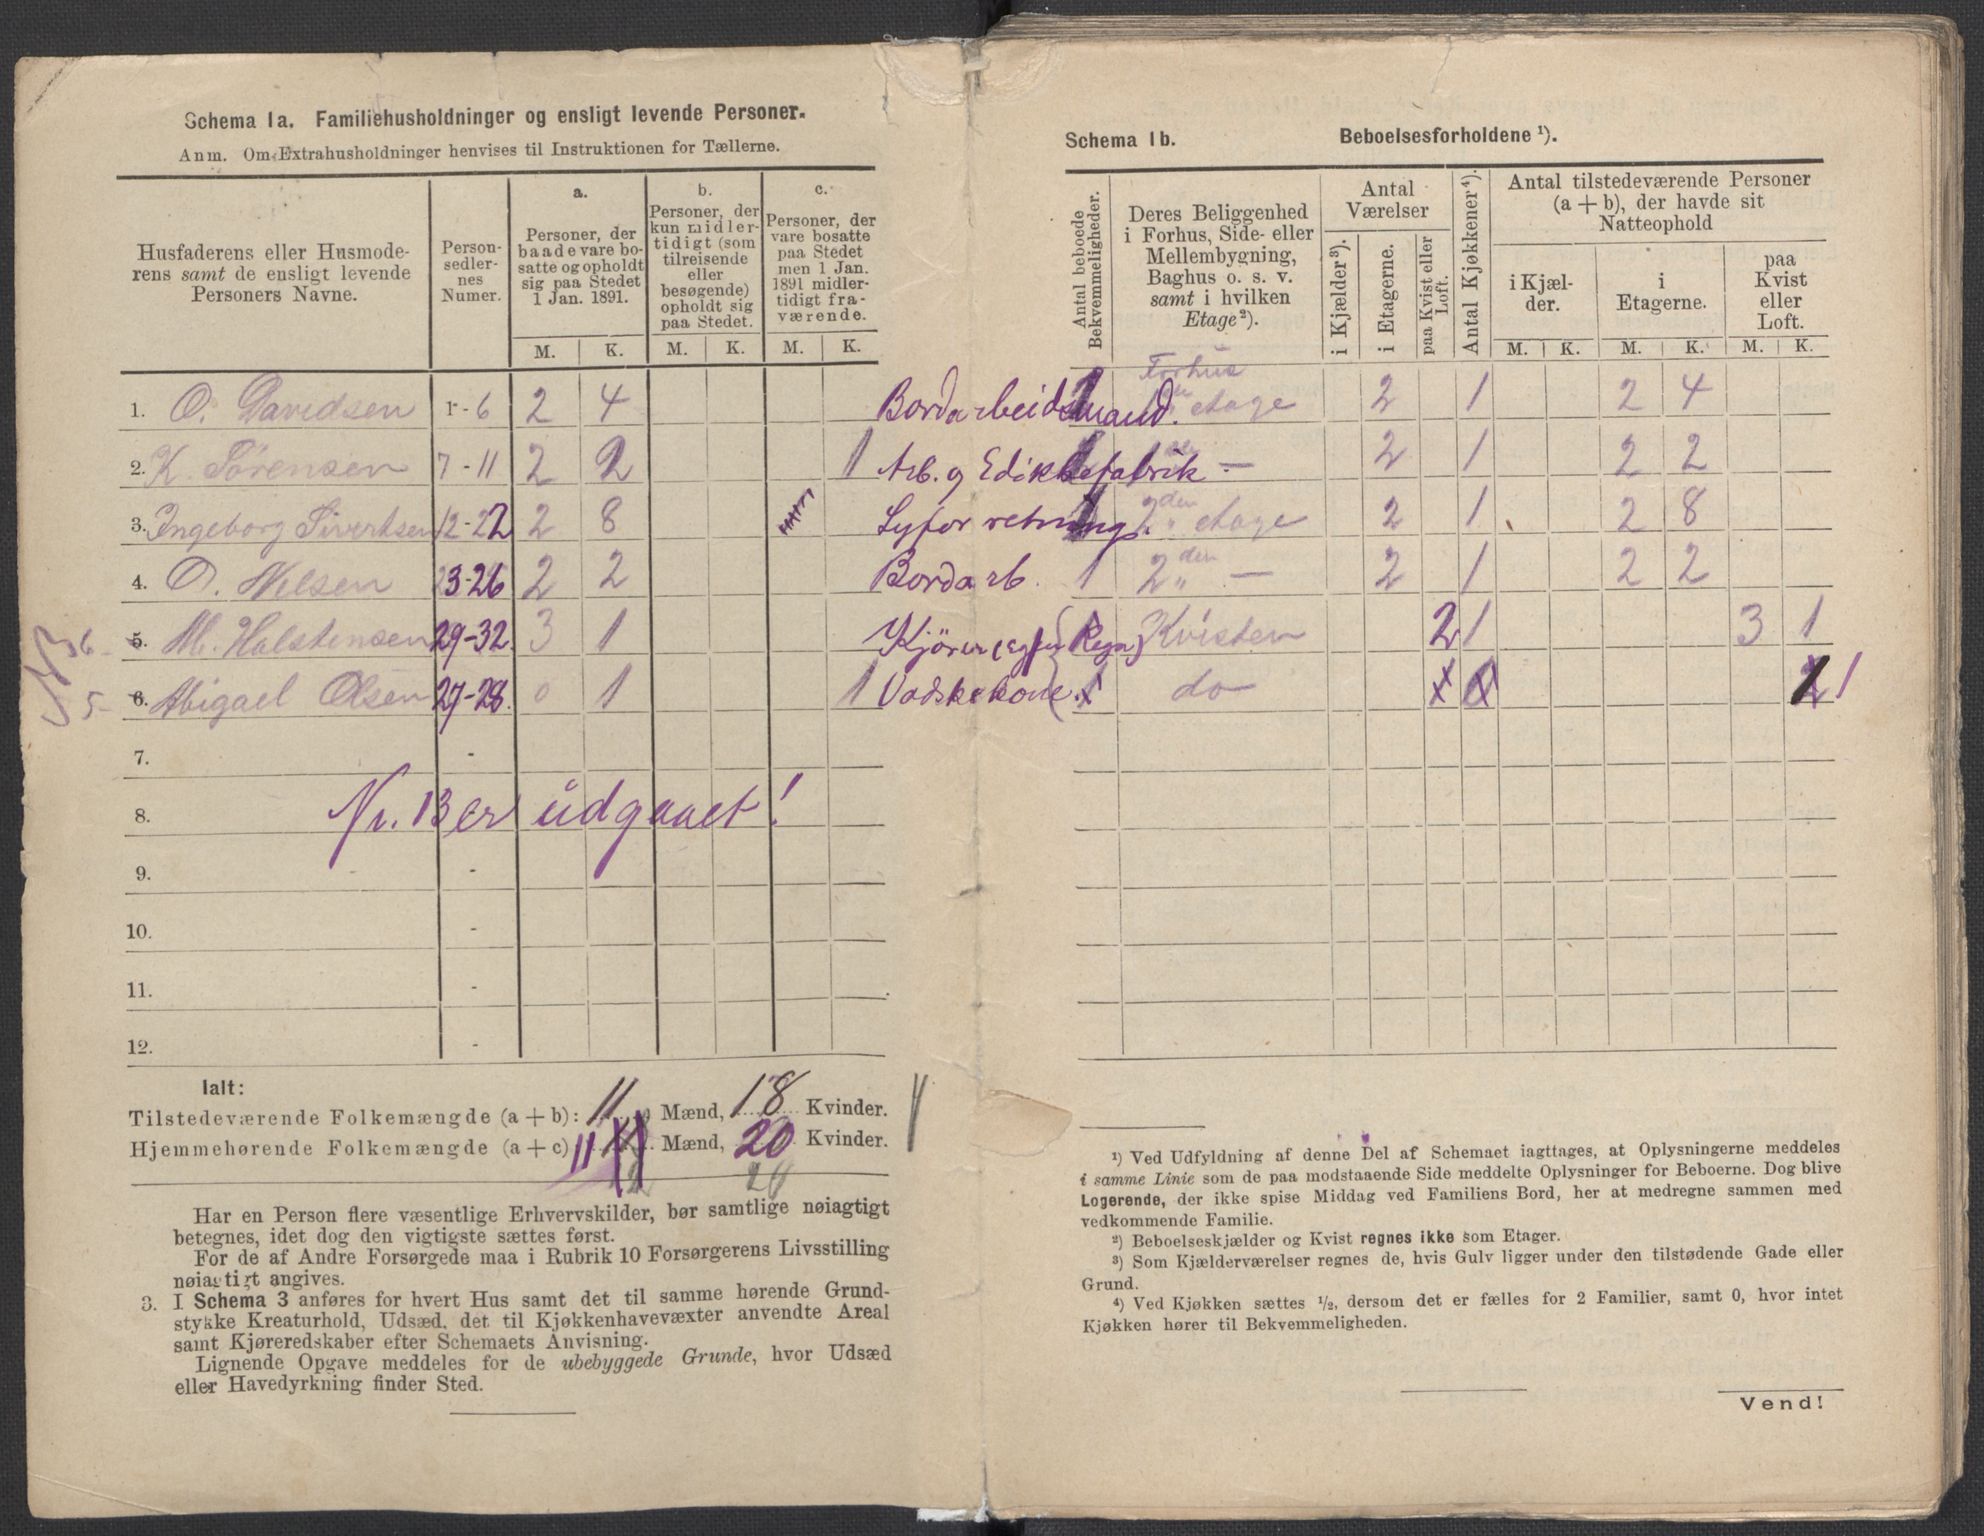 Schema 1a. Familiehusholdninger og ensligt levende Personer.
Anm. Om Extrahusholdninger henvises til Instruktionen for Tællerne.
Husfaderens eller Husmode-
rens samt de ensligt levende
Personers Navne.
Person-
sedler-
nes
Numer.
a.
Personer, der
baade vare bo-
satte og opholdt
sig paa Stedet
1 Jan. 1891.
b.
Personer, der
kun midler-
tidigt (som
tilreisende
eller
besøgende)
opholdt sig
paa Stedet.
c.
Personer, der
vare bosatte
paa Stedet
men 1 Jan.
1891 midler-
tidigt fra-
værende.
M. K. M. K. M. K.
1. O. Davidsen 1-6 2 4 Bordarbeidsmand.
2. K. Sörensen 7-11 2 2 1 Arb. g Edikkefabrik
3. Ingeborg Sivertsen 12-22 2 8 Syforretning.
4. O. Nilsen 23-26 2 2 Bordarb.
6 5. M. Halstensen 29-32. 3 1 Kjörer
5 6. Abigael Olsen 27-28. 0 1 1 Vadskekone.
7. -
8. Nr. 13 er udgaaet!
9. -
10. -
11. -
12. -
Ialt:
Tilstedeværende Folkemængde (a + b): 11 Mænd, 18 Kvinder.
Hjemmehørende Folkemængde (a + c) 11 Mænd, 20 Kvinder.
20
Har en Person flere væsentlige Erhvervskilder, bør samtlige nøiagtigt
betegnes, idet dog den vigtigste sættes først.
For de af Andre Forsørgede maa i Rubrik 10 Forsørgerens Livsstilling
nøiagtigt angives.
3. I Schema 3 anføres for hvert Hus samt det til samme hørende Grund-
stykke Kreaturhold, Udsæd, det til Kjøkkenhavevæxter anvendte Areal
samt Kjøreredskaber efter Schemaets Anvisning.
Lignende Opgave meddeles for de ubebyggede Grunde, hvor Udsæd
eller Havedyrkning finder Sted.
Schema 1b. Beboelsesforholdene ¹).
Antal beboede
Bekvemmeligheder.
Deres Beliggenhed
i Forhus, Side- eller
Mellembygning,
Baghus o. s. v.
samt i hvilken
Etage²).
Antal
Værelser
i Kjælder³).
i Etagerne.
paa Kvist eller
Loft.
Antal Kjøkkener⁴).
Antal tilstedeværende Personer
(a + b), der havde sit
Natteophold
i Kjæl-
der.
i
Etagerne.
paa
Kvist
eller
Loft.
M. K. M. K. M. K.
Forhus
1 etage 2 1 2 4
1 — 2 1 2 2
1 2den etage 2 1 2 8
1 2den — 2 1 2 2
1 Kvisten 2 1 3 1
1 do 1
¹) Ved Udfyldning af denne Del af Schemaet iagttages, at Oplysningerne meddeles
i samme Linie som de paa modstaaende Side meddelte Oplysninger for Beboerne. Dog blive
Logerende, der ikke spise Middag ved Familiens Bord, her at medregne sammen med
vedkommende Familie.
²) Beboelseskjælder og Kvist regnes ikke som Etager.
³) Som Kjælderværelser regnes de, hvis Gulv ligger under den tilstødende Gade eller
Grund.
⁴) Ved Kjøkken sættes ½, dersom det er fælles for 2 Familier, samt 0, hvor intet
Kjøkken hører til Bekvemmeligheden.
Vend!